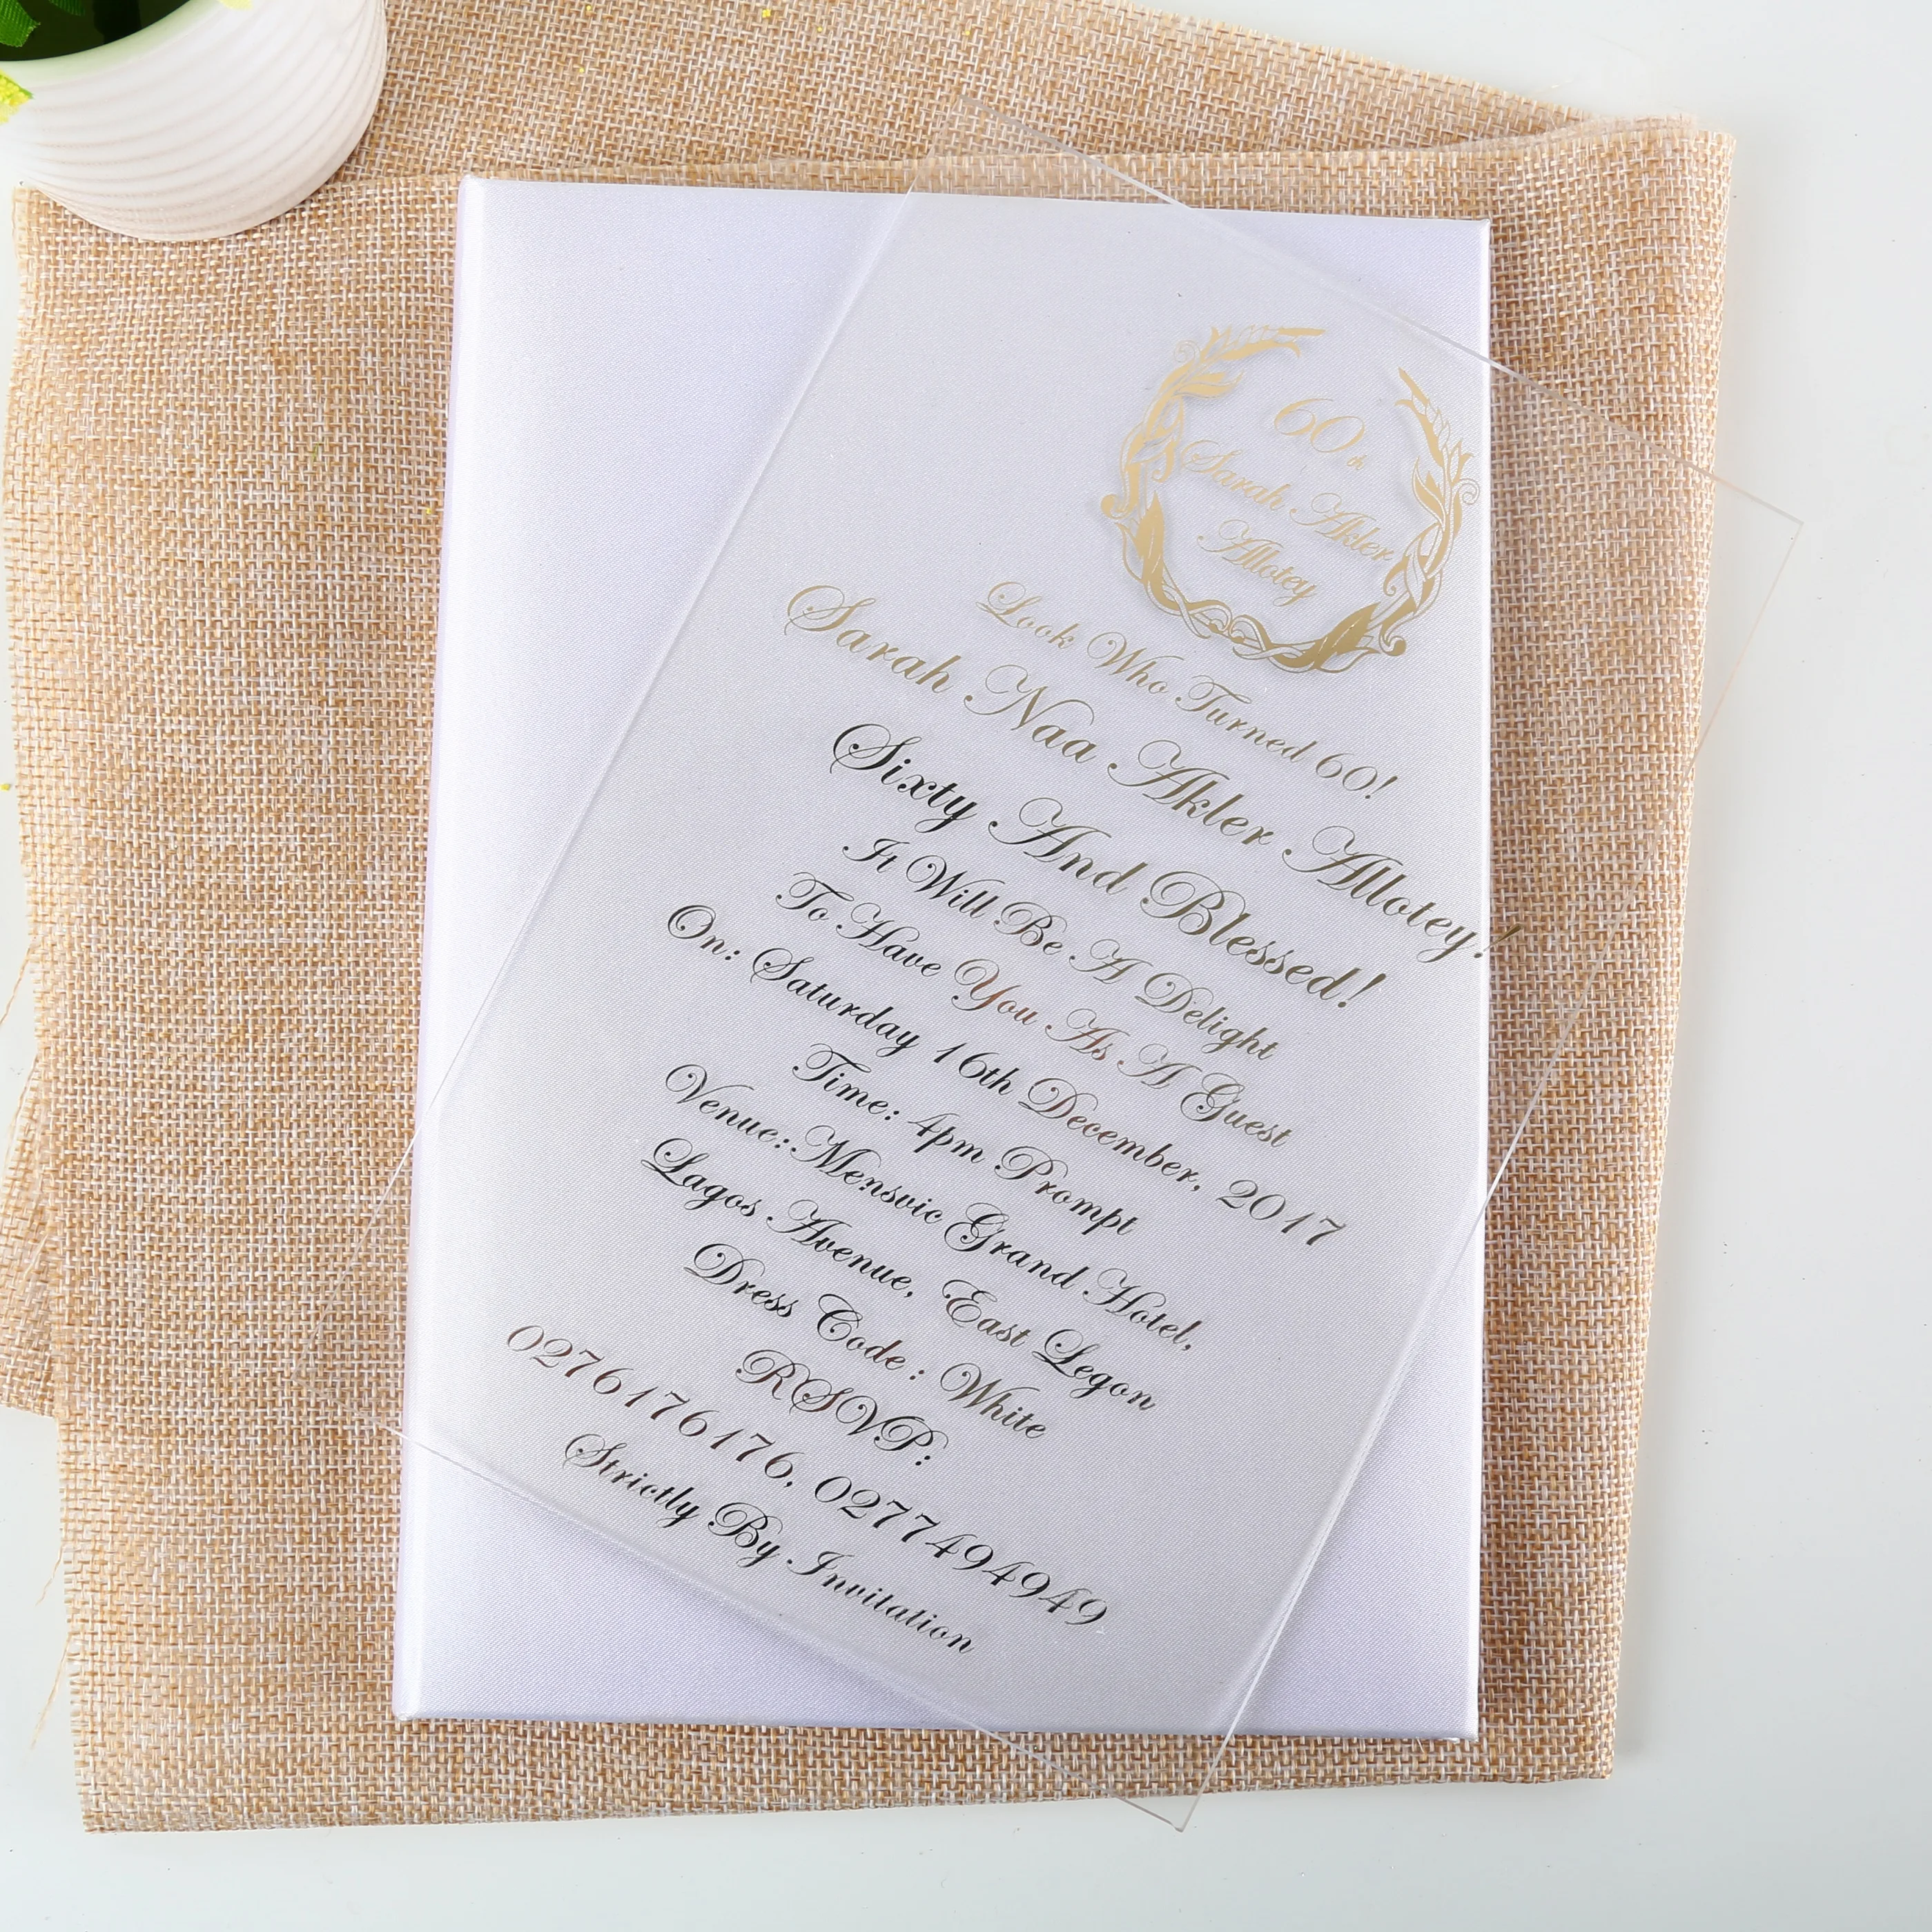 60th
Sarah Akler
Allotey
Look Who Turned 60!
Sarah Naa Akler Allotey!
Sixty And Blessed!
It Will Be A Delight
To Have You As A Guest
On: Saturday 16th December, 2017
Time: 4pm Prompt
Venue: Mensvic Grand Hotel,
Lagos Avenue, East Legon
Dress Code : White
RSVP:
0276176176, 0277494949
Strictly By Invitation